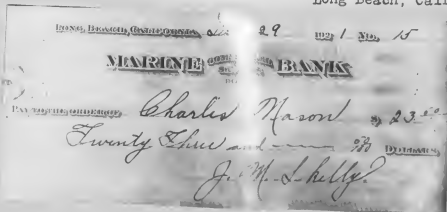 Long Beach, Cali
LONG BEACH, CALIFORNIA, 29 1921 No. 15
MARINE BANK
PAY TO THE ORDER OF Charles Mason $ 23.00
Twenty Three and DOLLARS
J. M. Skelly